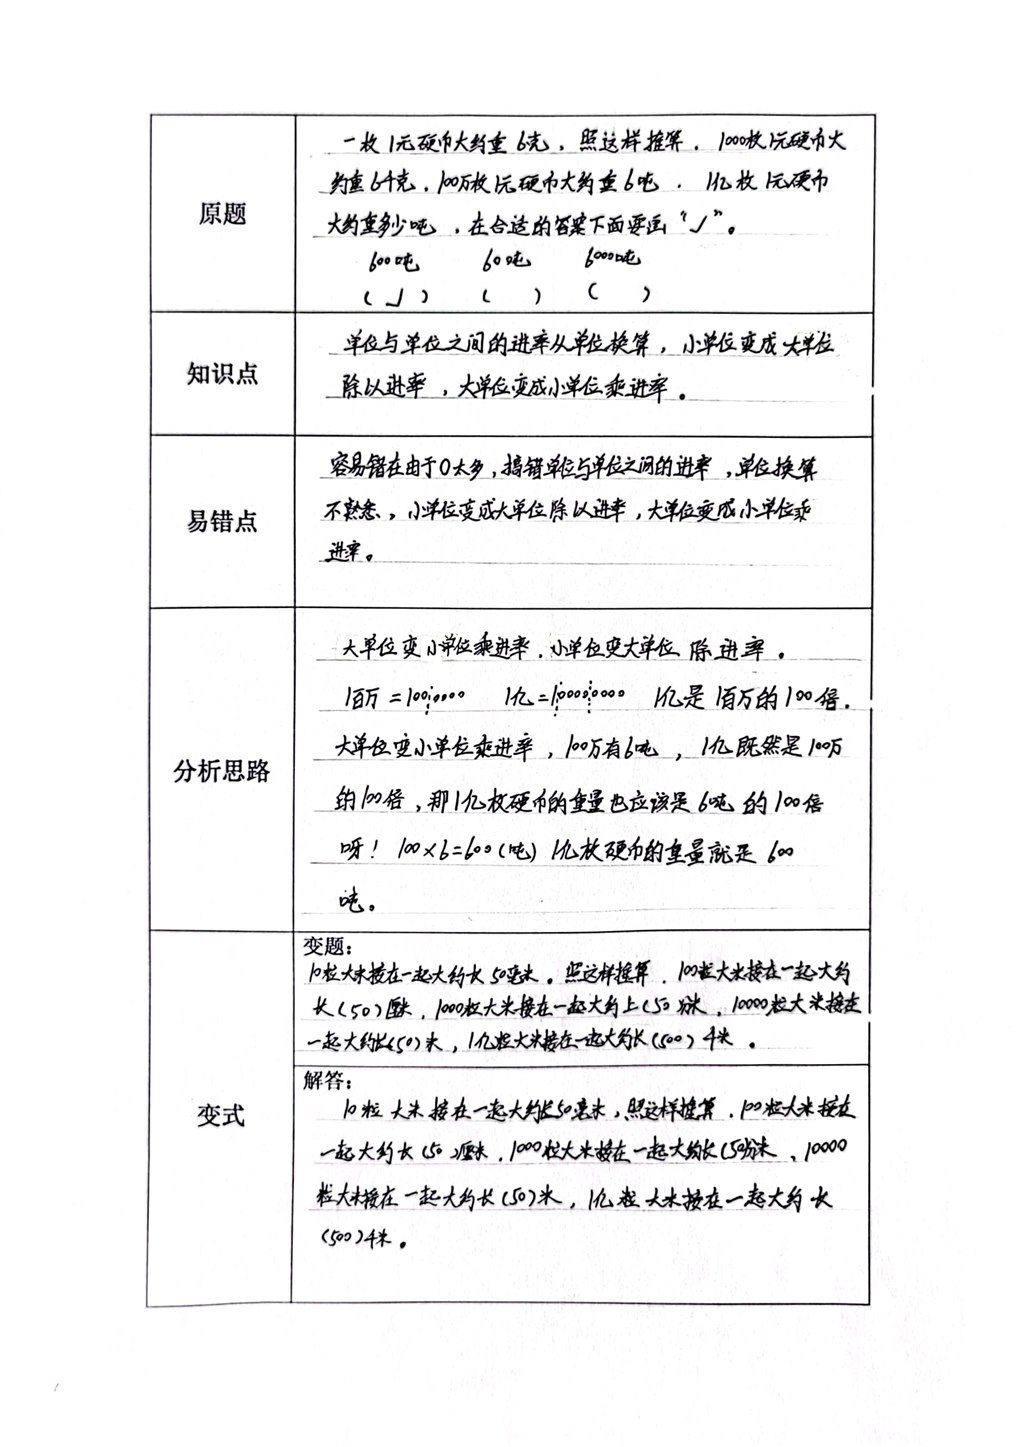 原题
一枚1元硬币大约重6克，照这样推算，1000枚1元硬币大
约重6千克，100万枚1元硬币大约重6吨，1亿枚1元硬币
大约重多少吨，在合适的答案下面要画“√”。
600吨 60吨 6000吨
(√) ( ) ( )
知识点
单位与单位之间的进率从单位换算，小单位变成大单位
除以进率，大单位变成小单位乘进率。
易错点
容易错在由于0太多，搞错单位与单位之间的进率，单位换算
不熟悉，小单位变成大单位除以进率，大单位变成小单位乘
进率。
分析思路
大单位变小单位乘进率，小单位变大单位除进率。
1百万=1000000 1亿=100000000 1亿是1百万的100倍.
大单位变小单位乘进率，100万有6吨，1亿既然是100万
的100倍，那1亿枚硬币的重量也应该是6吨的100倍
呀！100×6=600(吨) 1亿枚硬币的重量就是600
吨。
变式
变题：
10粒大米接在一起大约长50毫米。照这样推算，100粒大米接在一起大约
长(50)厘米，1000粒大米接在一起大约上(50)分米，10000粒大米接在
一起大约长(50)米，1亿粒大米接在一起大约长(500)千米。
解答：
10粒大米接在一起大约长50毫米，照这样推算，100粒大米接在
一起大约长(50)厘米，1000粒大米接在一起大约长(50)分米、10000
粒大米接在一起大约长(50)米，1亿粒大米接在一起大约长
(500)千米。